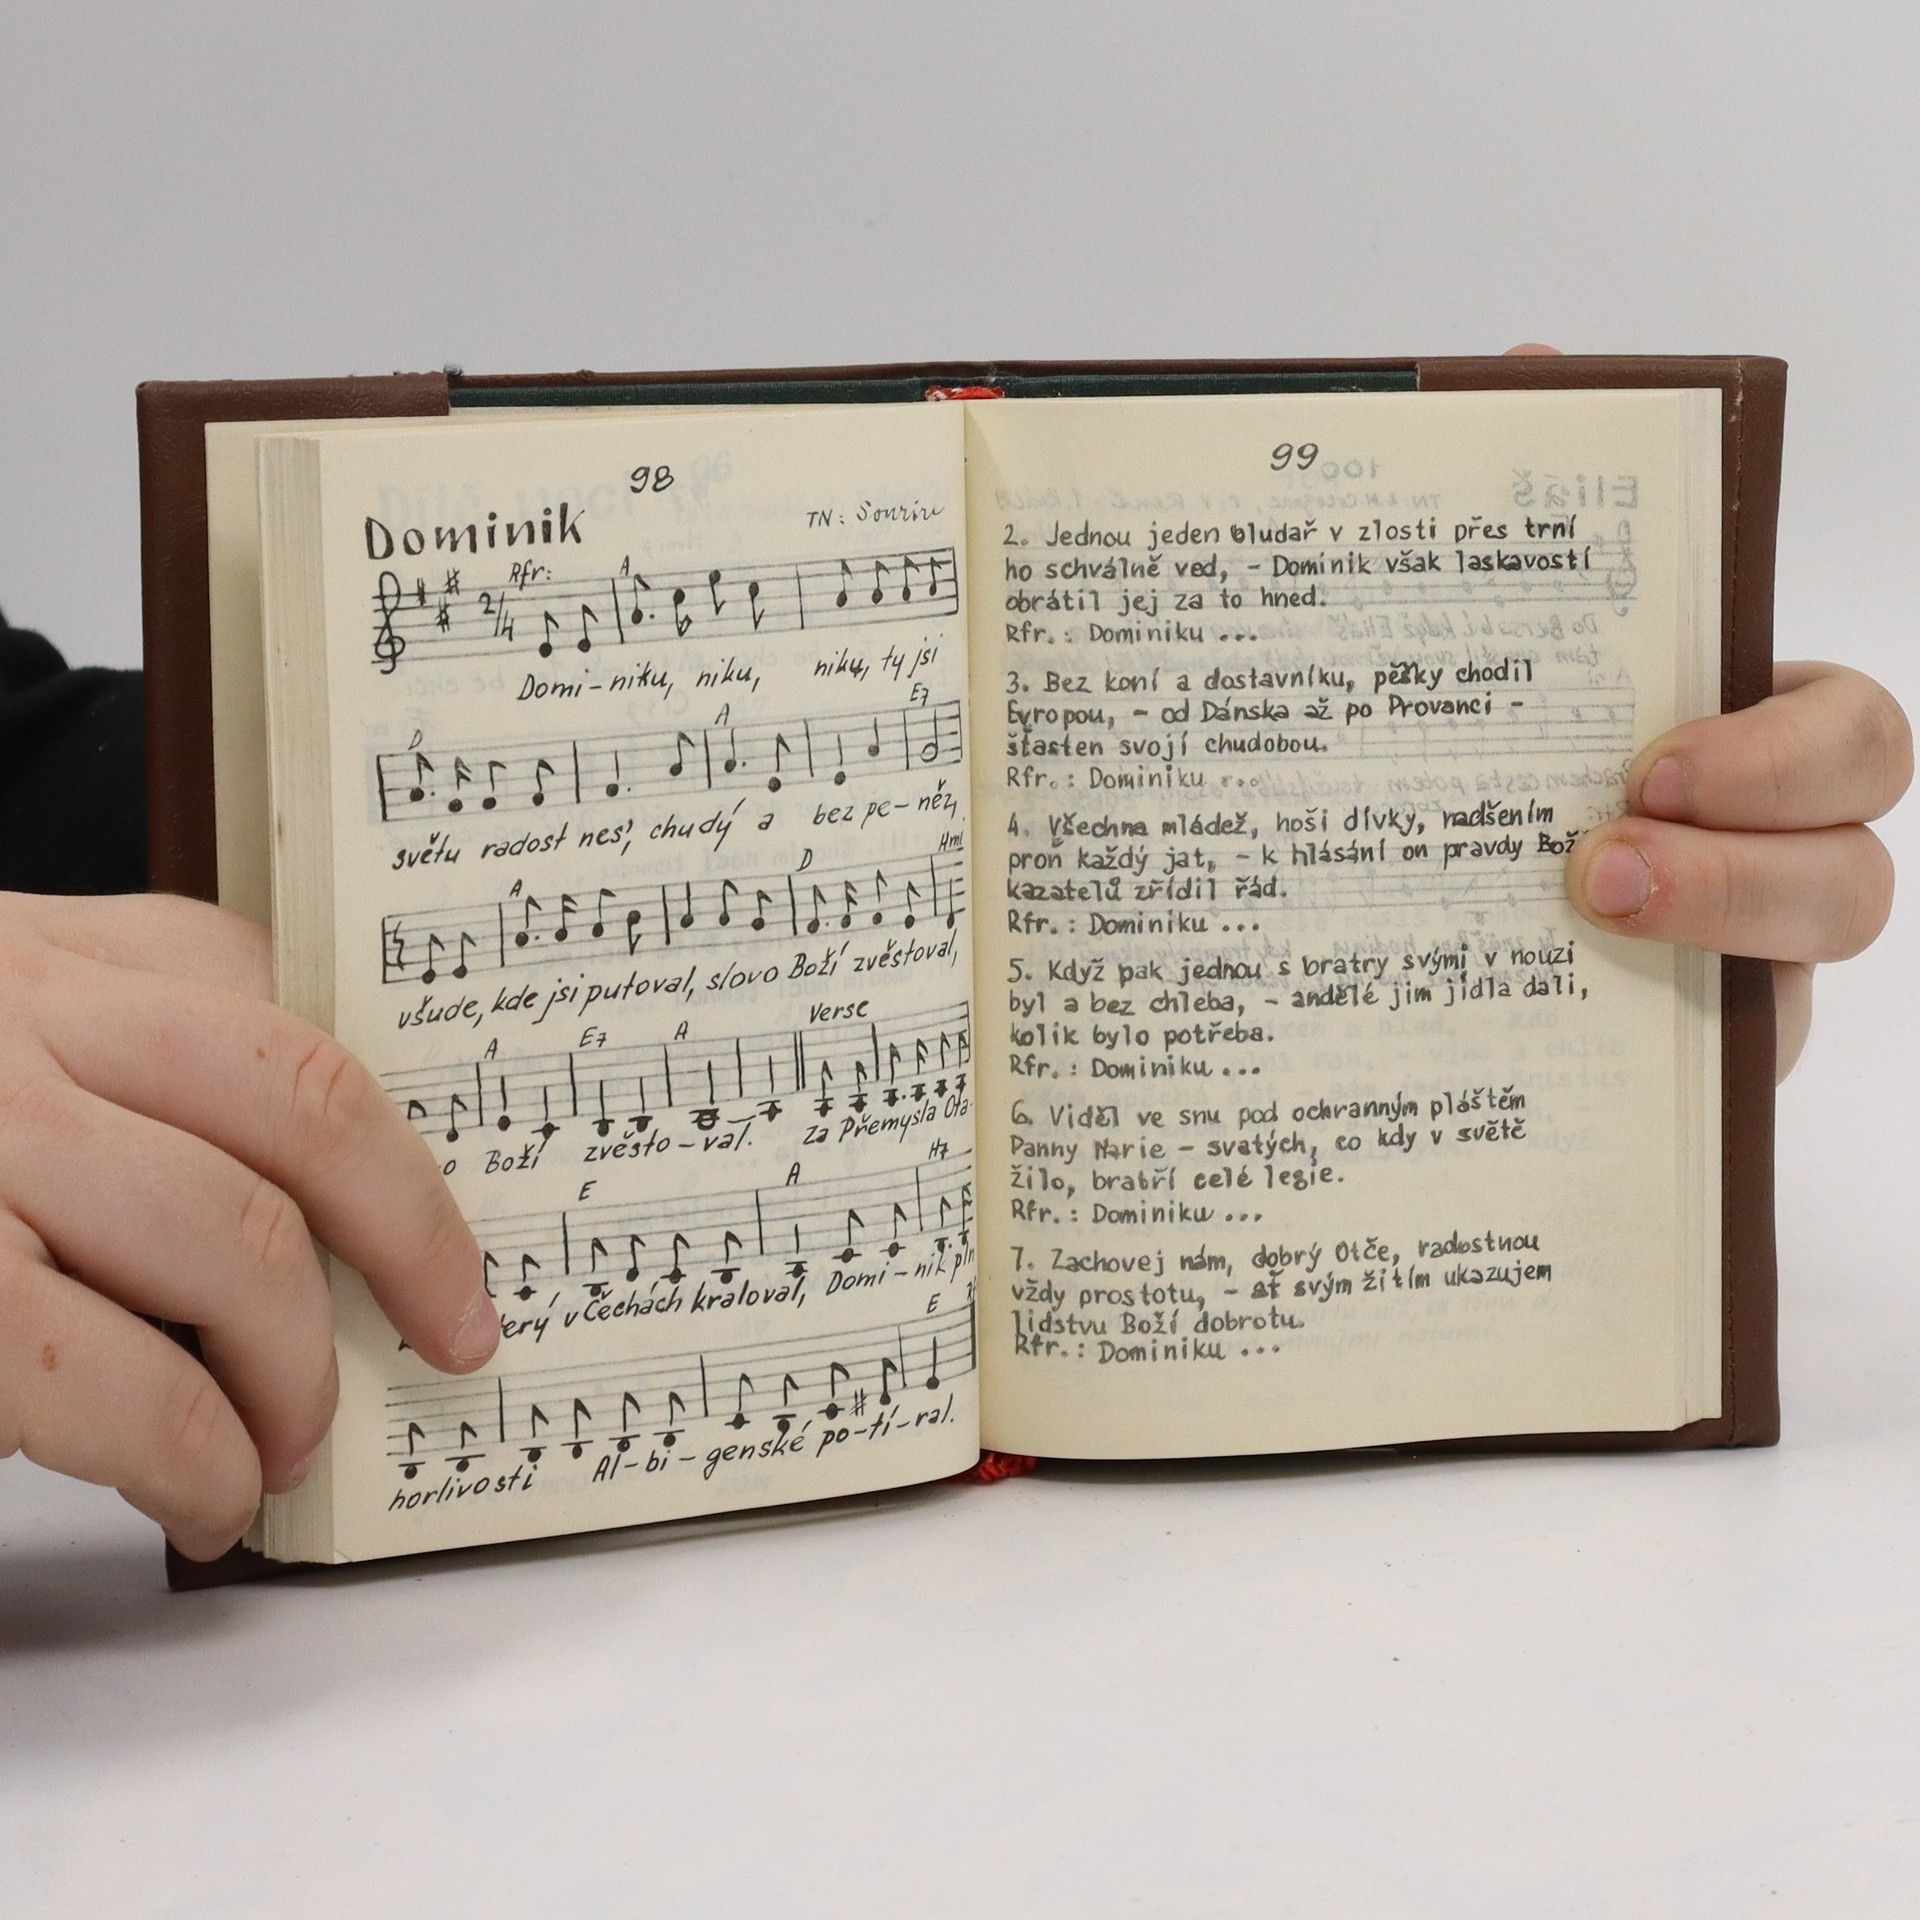 98
Dominik
TN: Sourire
Rfr: A
2/4
Domi-niku, niku, niku, ty jsi
D A E7
světu radost nes', chudý a bez pe-něz,
A D Hmi
všude, kde jsi putoval, slovo Boží zvěstoval,
A E7 A Verse
o Boží zvěsto-val. Za Přemysla Ota-
E A H7
terý v Čechách kraloval, Domi-nik pln
E
horlivosti Al-bi-genské po-tí-ral.
99
2. Jednou jeden bludař v zlosti přes trní
ho schválně ved, - Dominik však laskavostí
obrátil jej za to hned.
Rfr.: Dominiku ...
3. Bez koní a dostavníku, pěšky chodil
Evropou, - od Dánska až po Provanci -
šťasten svojí chudobou.
Rfr.: Dominiku ...
4. Všechna mládež, hoši dívky, nadšením
proň každý jat, - k hlásání on pravdy Bož
kazatelů zřídil řád.
Rfr.: Dominiku ...
5. Když pak jednou s bratry svými v nouzi
byl a bez chleba, - andělé jim jídla dali,
kolik bylo potřeba.
Rfr.: Dominiku ...
6. Viděl ve snu pod ochranným pláštěm
Panny Marie - svatých, co kdy v světě
žilo, bratří celé legie.
Rfr.: Dominiku ...
7. Zachovej nám, dobrý Otče, radostnou
vždy prostotu, - ať svým žitím ukazujem
lidstvu Boží dobrotu.
Rfr.: Dominiku ...